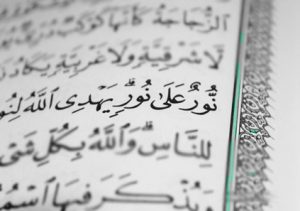 ٱلزُّجَاجَةُ كَأَنَّهَا كَوْكَبٌ
لَّا شَرْقِيَّةٍ وَلَا غَرْبِيَّةٍ يَكَادُ
نُّورٌ عَلَىٰ نُورٍ ۗ يَهْدِى ٱللَّهُ
لِلنَّاسِ ۗ وَٱللَّهُ بِكُلِّ
وَيُذْكَرَ فِيهَا